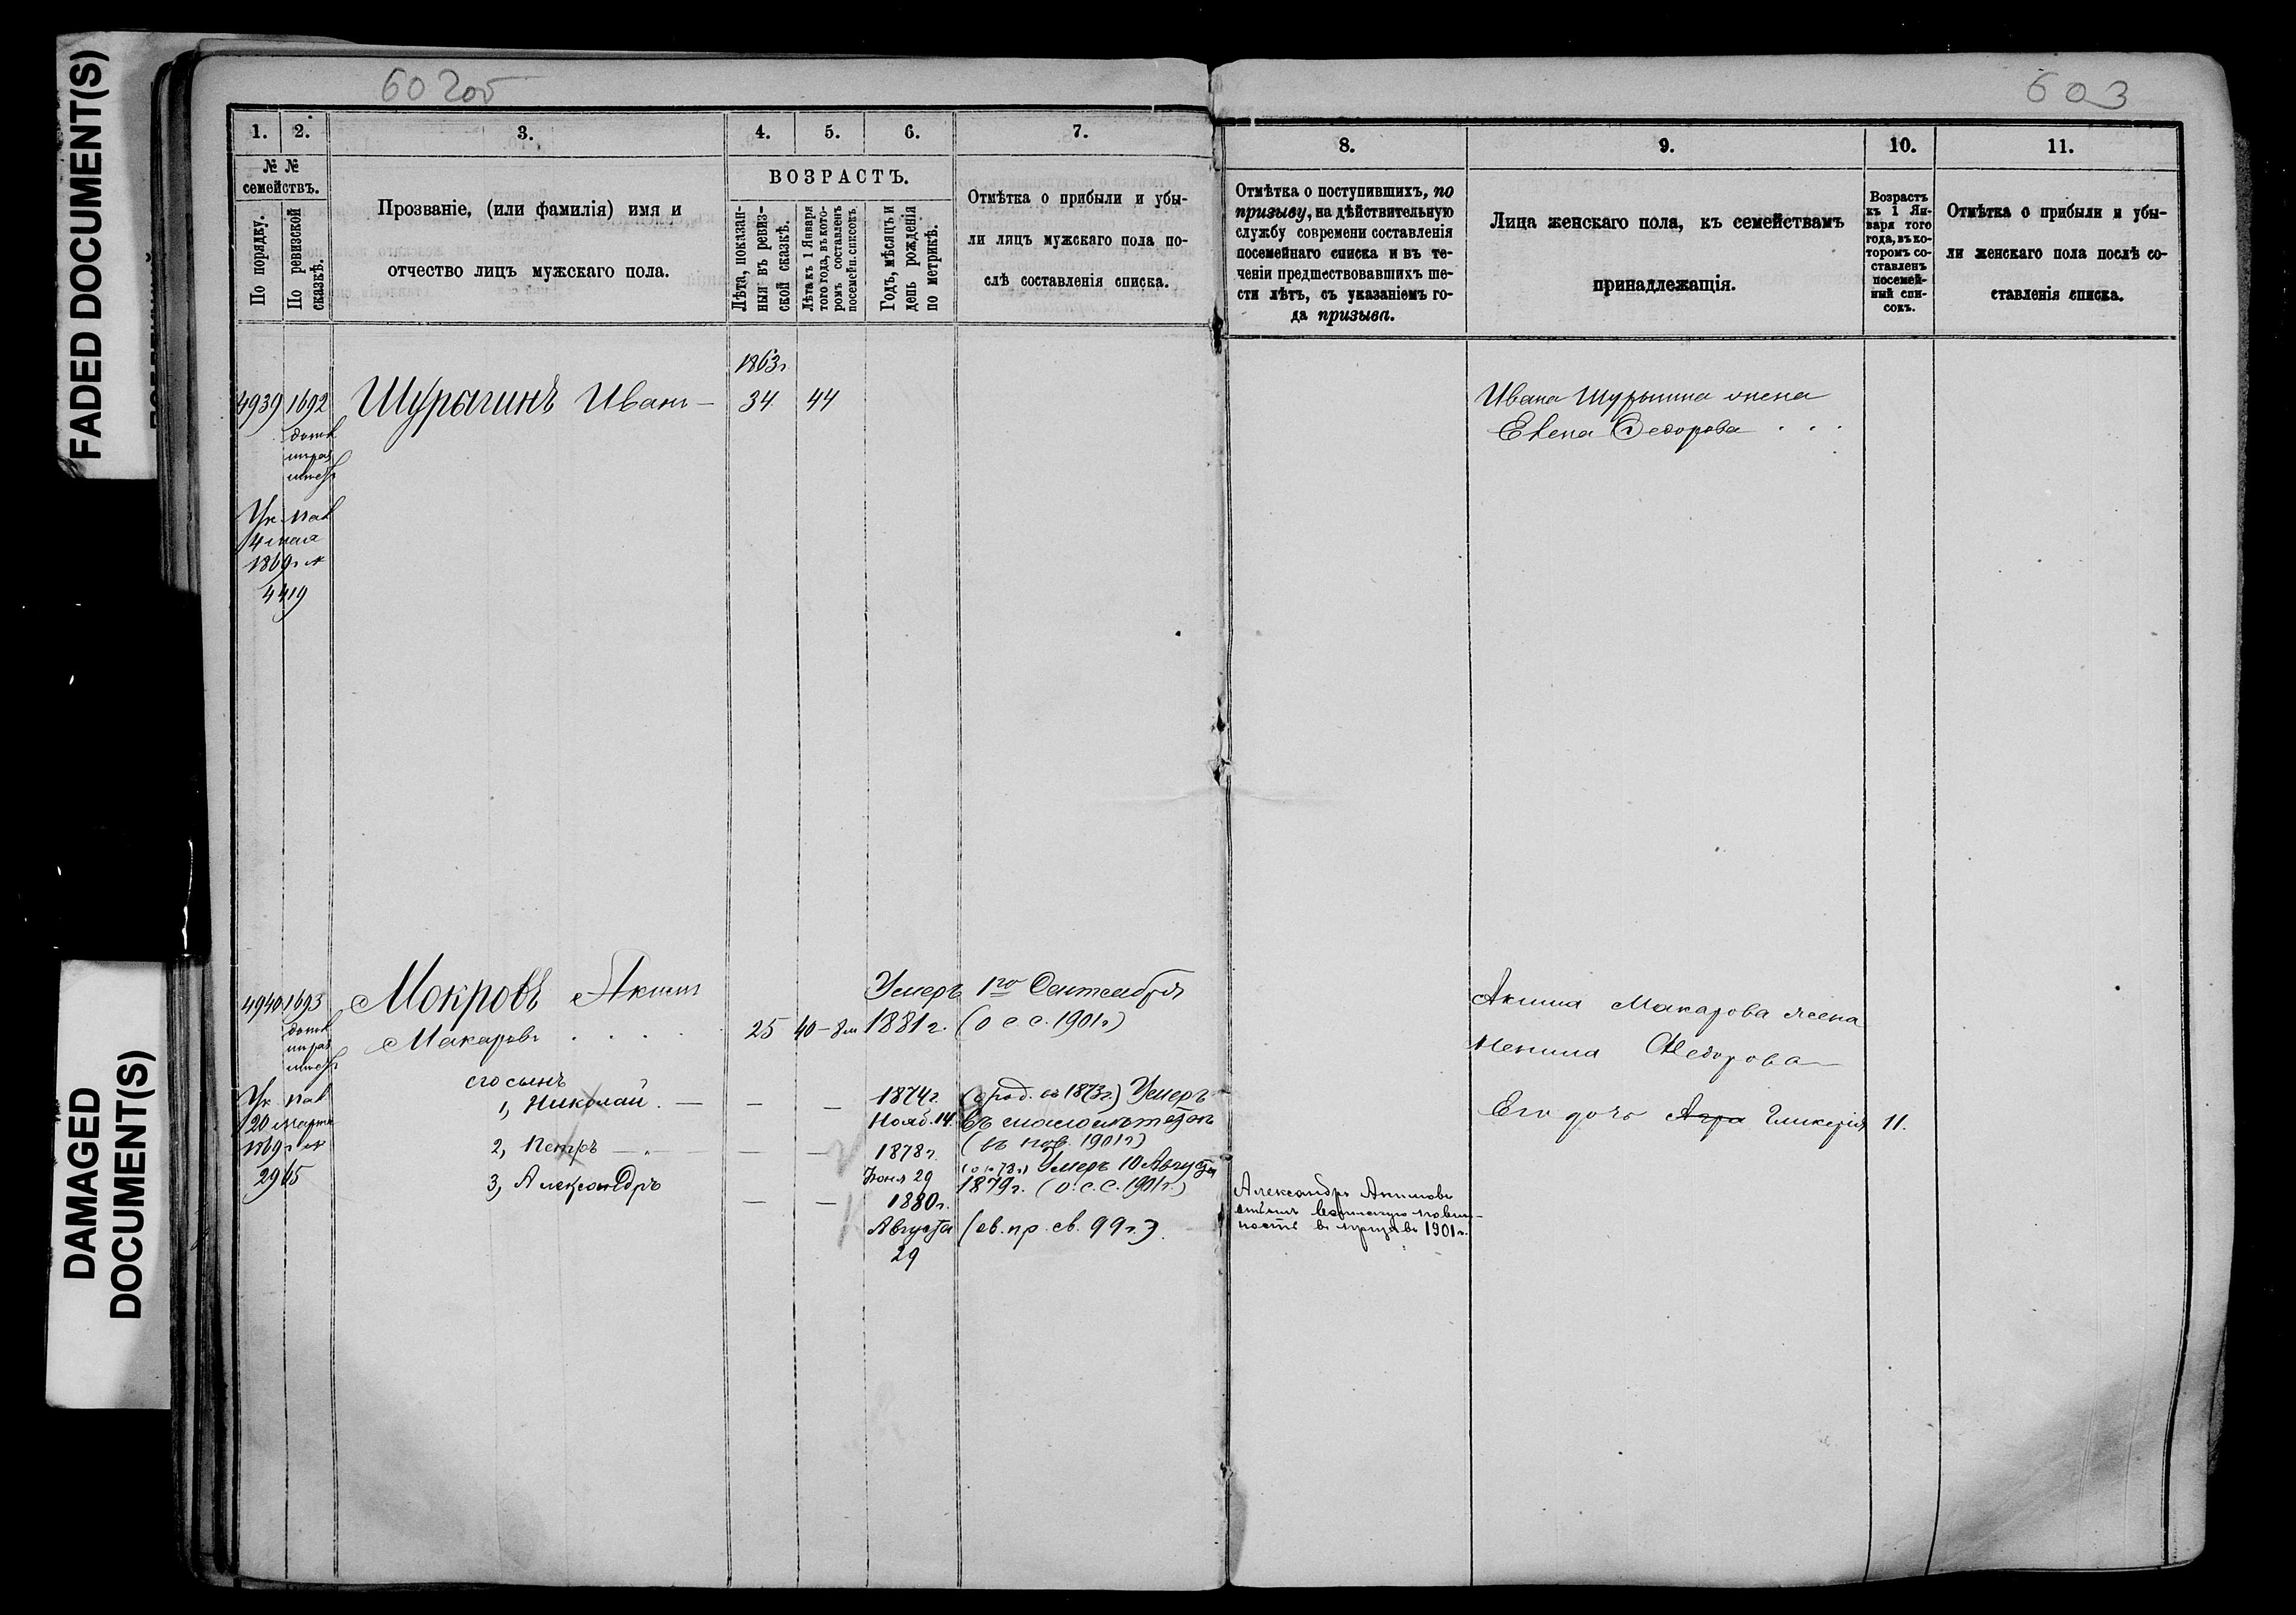 FADED DOCUMENT(S)
DAMAGED
DOCUMENT(S)
602об
603
1. 2. 3. 4. 5. 6. 7.
№ №
семействъ.
По порядку.
По ревизской
сказкѣ.
Прозваніе, (или фамилія) имя и
отчество лицъ мужскаго пола.
ВОЗРАСТЪ.
Лѣта, показан-
ныя въ ревиз-
ской сказкѣ.
Лѣта къ 1 Января
того года, въ кото-
ромъ составленъ
посемейн. списокъ.
Годъ, мѣсяцъ и
день рожденія
по метрикѣ.
Отмѣтка о прибыли и убы-
ли лицъ мужскаго пола по-
слѣ составленія списка.
8. 9. 10. 11.
Отмѣтка о поступившихъ, по
призыву, на дѣйствительную
службу современи составленія
посемейнаго списка и въ те-
ченіи предшествовавшихъ ше-
сти лѣтъ, съ указаніемъ го-
да призыва.
Лица женскаго пола, къ семействамъ
принадлежащія.
Возрастъ
къ 1 Ян-
варя того
года, въ ко-
торомъ со-
ставленъ
посемей-
ный спи-
сокъ.
Отмѣтка о прибыли и убы-
ли женскаго пола послѣ со-
ставленія списка.
1863г
4939 1692 Шурыгинъ Иванъ 34 44
4 мая
1869г №
4419
Ивана Шурыгина жена
Елена Федорова
4940 1693 Мокровъ Акимъ
Макаровъ 25 40
Умеръ 1го Сентября
1881г. (о с.с. 1901г)
20 марта
1869г №
2965
его сынъ
1, Николай
1874г.
Нояб. 14.
(род. въ 1873г.) Умеръ
въ малолѣтствѣ
(въ 1901г)
2, Петръ
1878г.
Іюня 29
Умеръ 10 Августа
1879г. (о.с.с. 1901г.)
3, Александръ
1880г.
Августа
29
(св. пр. св. 99г.)
Александръ Акимовъ
воинскую повин-
ность въ призывъ 1901г.
Акима Макарова жена
Федорова
Его дочь Гликерія 11.